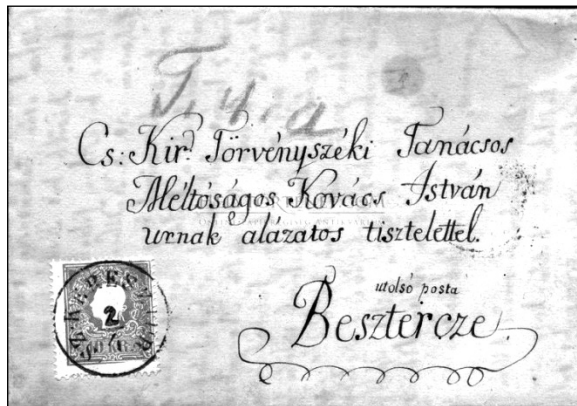 T. y. a
Cs: Kir: Törvényszéki Tanácsos
Méltóságos Kovács István
urnak alázatos tisztelettel.
utolsó posta
Besztercze
2